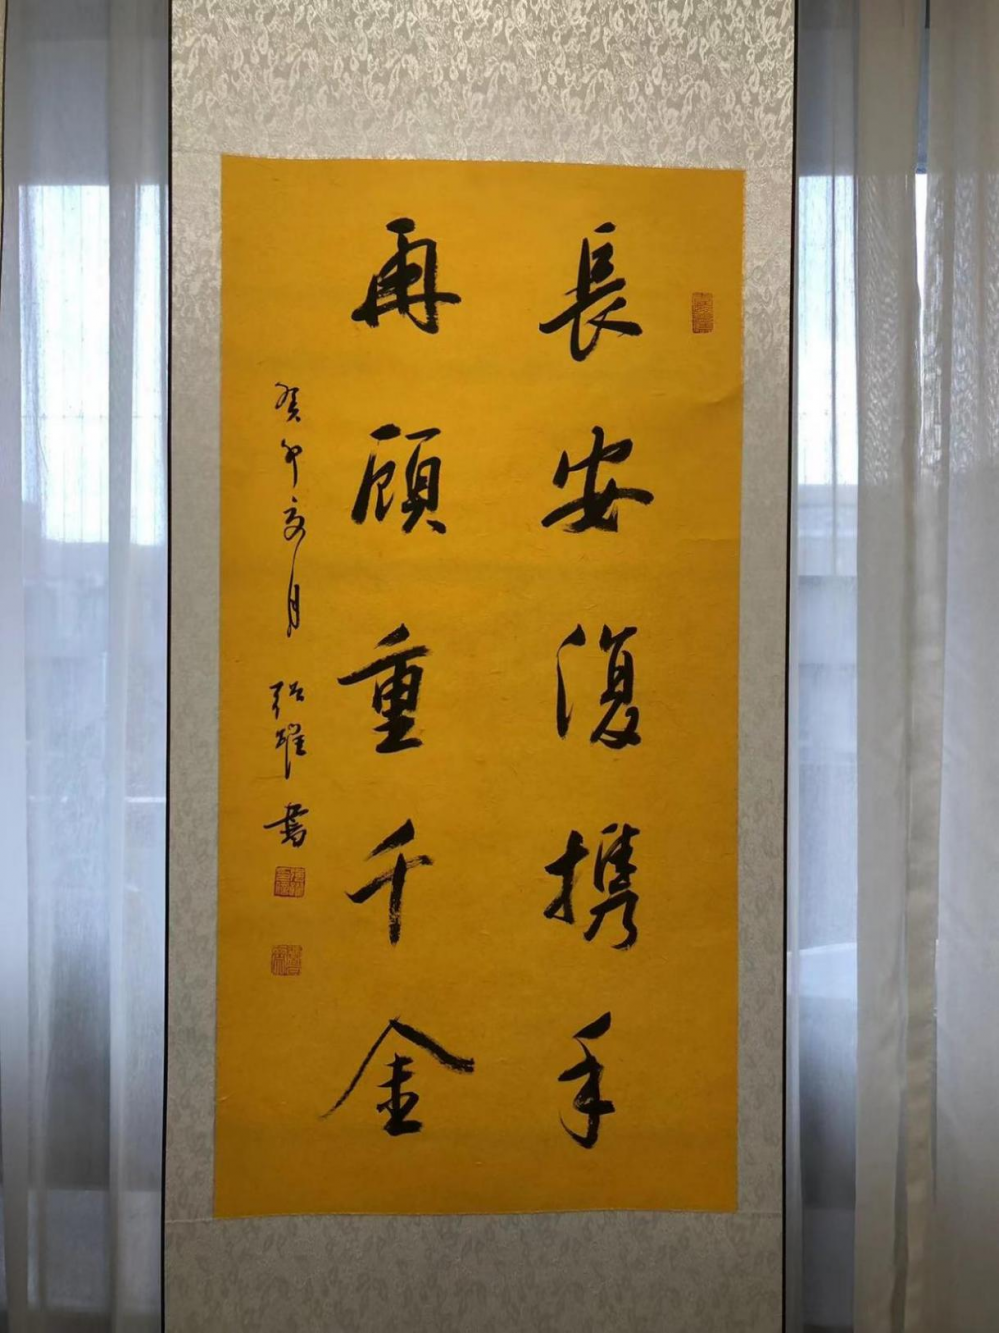 長安復携手
再顧重千金
癸卯亥月 弘耀書